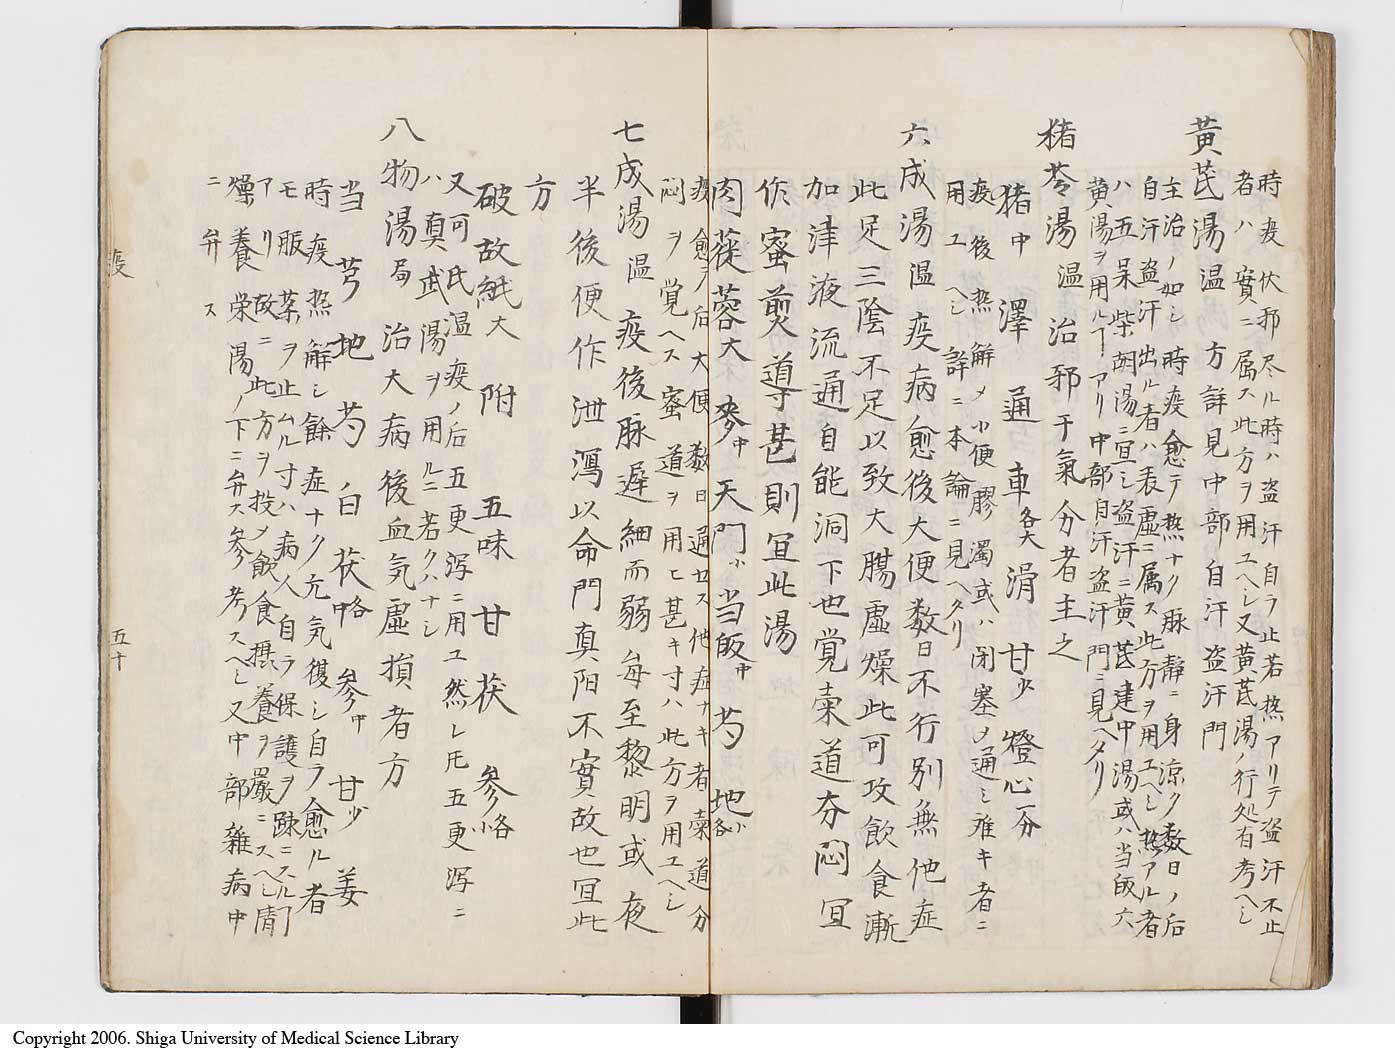 黄芪湯 温 方詳見中部自汗盗汗門
時疫伏邪尽ル時ハ盗汗自ラ止若熱アリテ盗汗不止
者ハ實ニ属ス此方ヲ用ユヘシ又黄芪湯ノ行処有考ヘシ
主治ノ如シ時疫愈テ熱ナク脉静ニ身涼ク数日ノ后
自汗盗汗出ル者ハ表虚ニ属ス此方ヲ用ユヘシ熱アル者
ハ五呆柴胡湯ニ宜シ盗汗ニ黄芪建中湯或ハ当皈六
黄湯ヲ用ルヿアリ中部自汗盗汗門ニ見ヘタリ
猪苓湯 温 治邪干氣分者主之
猪中 澤 通 車各大 滑 甘少 燈心一分
疫後熱解メ小便膠濁或ハ閉塞ノ通シ难キ者ニ
用ユヘシ詳ニ本論ニ見ヘタリ
六成湯 温 疫病愈後大便数日不行別無他症
此足三陰不足以致大腸虚燥此可攻飲食漸
加津液流通自能洞下也覚槖道夯悶宜
作蜜煎導甚則宜此湯
肉蓯蓉大 麥中 天門小 当皈中 芍 地各小
疫愈ヲ后大便数日通セス他症ナキ者槖道分
悶ヲ覚ヘス蜜道ヲ用ヒ甚キ寸ハ此方ヲ用ユヘシ
七成湯 温 疫後脉遅細而弱每至黎明或夜
半後便作泄瀉以命門真阳不實故也宜此
方
破故紙大 附 五味 甘 茯 參各小
又可氏温疫ノ后五更泻ニ用ユ然レ𪜈五更泻ニ
ハ真武湯ヲ用ルニ若クハナシ
八物湯 局 治大病後血気虚損者方
当 芎 地 芍 白 茯各中 參中 甘少 姜
時疫热解シ餘症ナク元気復シ自ラ愈ル者
モ服薬ヲ止ムル寸ハ病人自ラ保護ヲ踈ニスルヿ
アリ故ニ此方ヲ投メ飲食摂養ヲ嚴ニスヘシ
燥養栄湯ノ下ニ弁ス參考スヘシ又中部雜病中
ニ弁ス
疫
五十
Copyright 2006. Shiga University of Medical Science Library